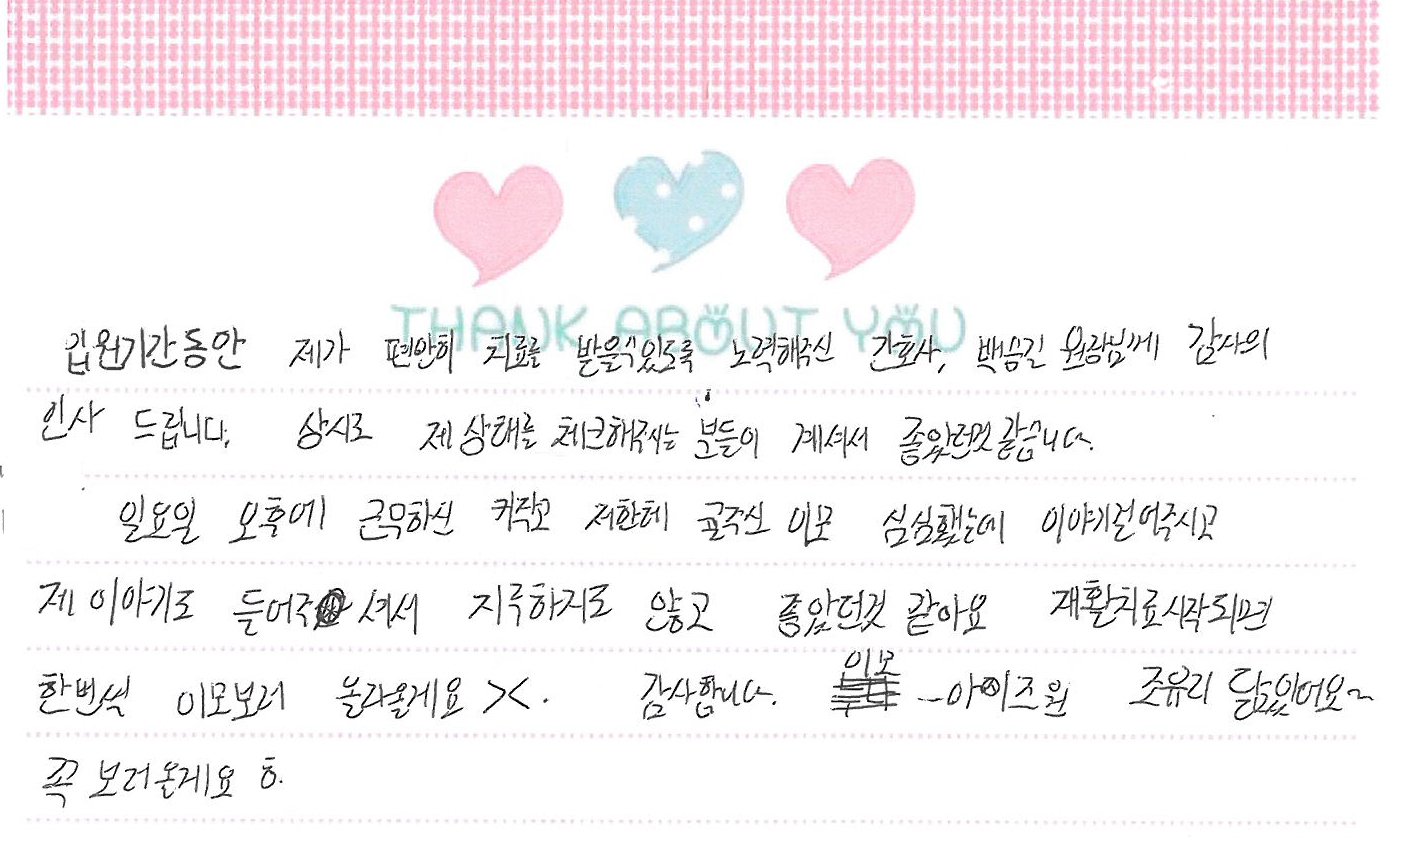 THANK ABOUT YOU
입원기간동안 제가 편안히 치료를 받을수있도록 노력해주신 간호사, 백승길 원장님께 감사의
인사 드립니다. 상시로 제 상태를 체크해주시는 분들이 계셔서 좋았던것 같습니다.
일요일 오후에 근무하신 키작고 저한테 귤주신 이모 심심했는데 이야기걸어주시고
제 이야기도 들어주셔서 지루하지도 않고 좋았던것 같아요 재활치료시작되면
한번씩 이모보러 놀라올게요 ><. 감사합니다. 이모 -아이즈원 조유리 닮았어요~
꼭 보러올게요 ㅎ.